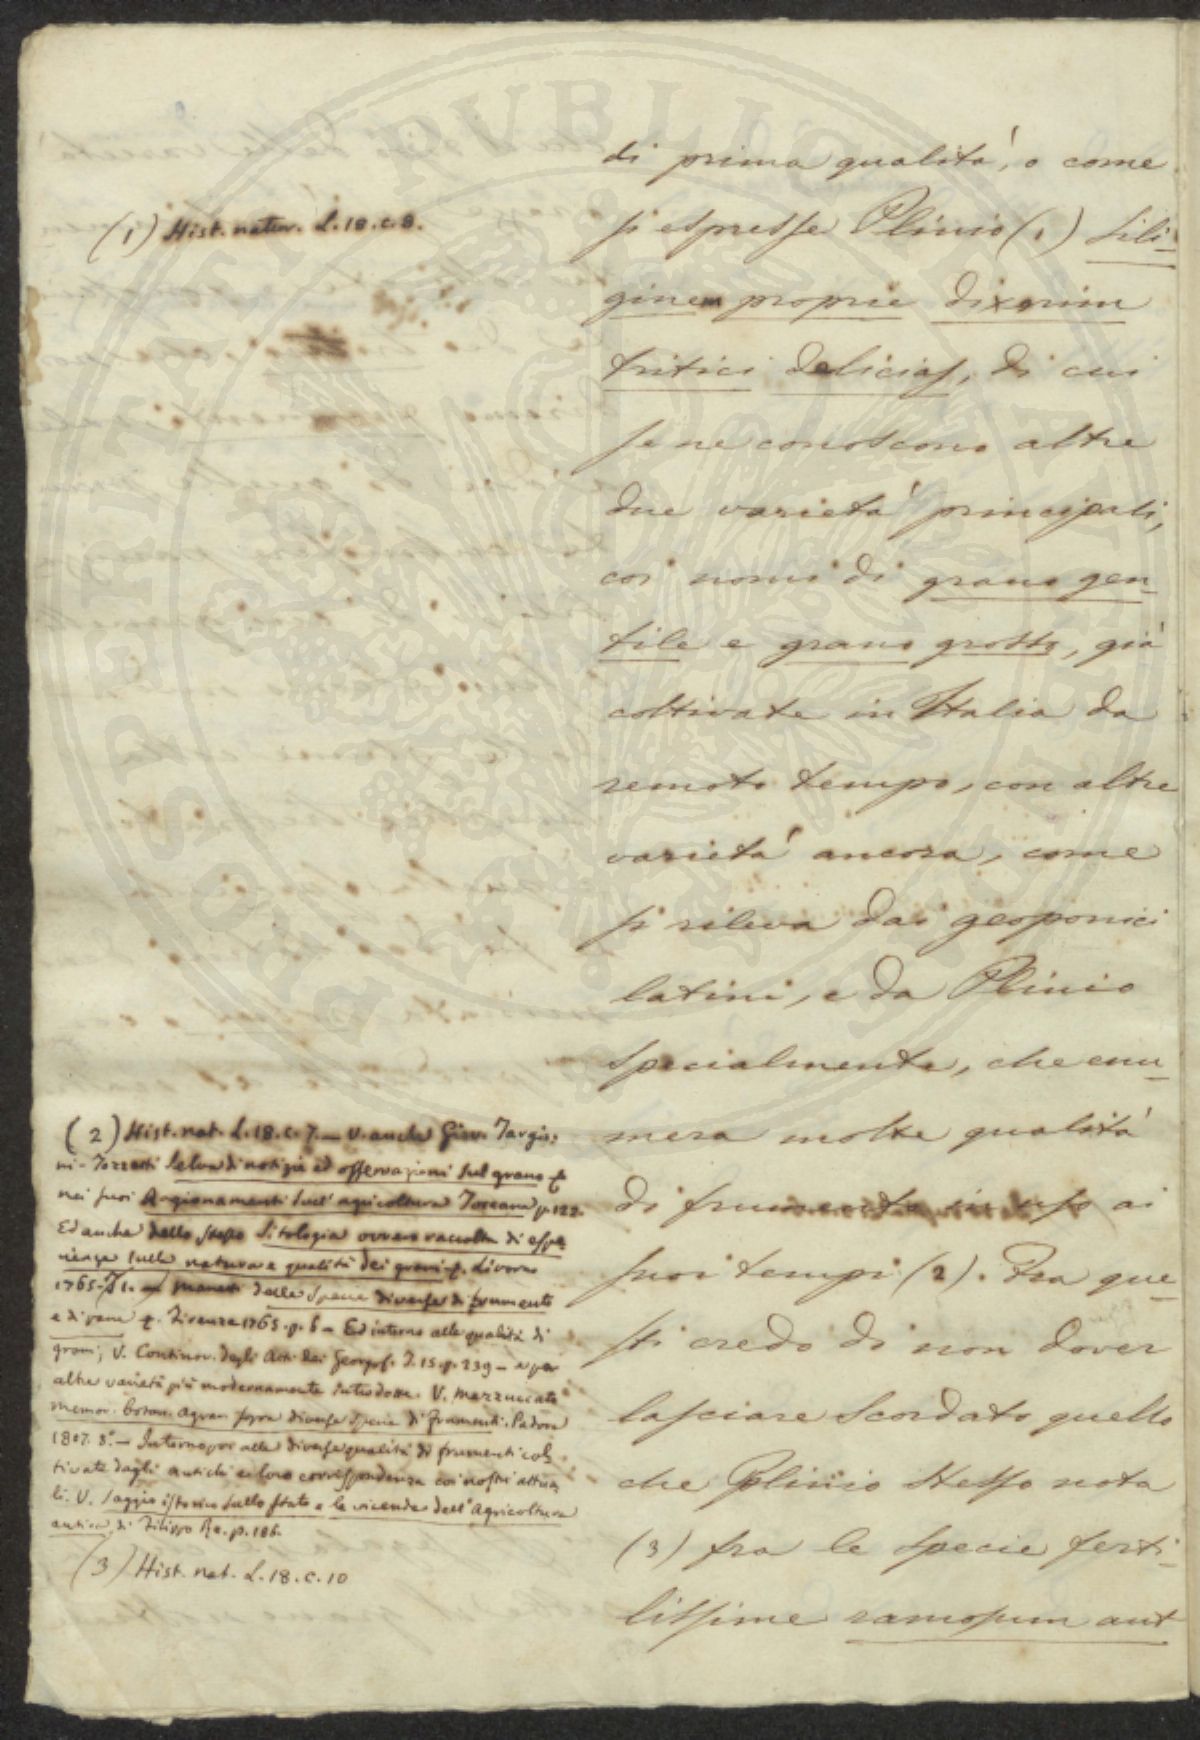 di prima qualità, o come
si espresse Plinio (1) Sili-
ginem proprie dixerim
tritici delicias, di cui
se ne conoscono altre
due varietà principali,
coi nomi di grano gen-
tile e grano grosso, già
coltivate in Italia da
remoto tempo, con altre
varietà ancora, come
si rileva dai geoponici
latini, e da Plinio
specialmente, che enu-
mera molte qualità
di frumento in uso ai
suoi tempi (2). Fra que-
sti credo di non dover
lasciare scordato quello
che Plinio stesso nota
(3) fra le specie ferti-
lissime ramosum aut
(1) Hist. natur. L. 18. c. 8.
(2) Hist. nat. L. 18. c. 7. — V. anche Giov. Targio-
ni-Tozzetti Selva di notizie ed osservazioni sul grano
nei suoi Ragionamenti sull'agricoltura Toscana p. 122.
Ed anche dello stesso Sitologia ovvero raccolta di espe-
rienze sulla natura e qualità dei grani. Livorno
1765. T. 1. — Manetti Delle Specie diverse di frumento
e di pane. Firenze 1765. p. 6 — Ed intorno alle qualità di
grani, V. Continov. degli Atti dei Georgof. T. 15. p. 239 — e per
altre varietà più modernamente introdotte. V. Mazzuccato
memor. botan. agrar. sopra diverse specie di frumenti. Padova
1807. 8.° — Intorno poi alle diverse qualità di frumenti col-
tivate dagli antichi e loro corrispondenza coi nostri attua-
li. V. Saggio istorico sullo stato e le vicende dell'Agricoltura
antica di Filippo Re. p. 186.
(3) Hist. nat. L. 18. c. 10